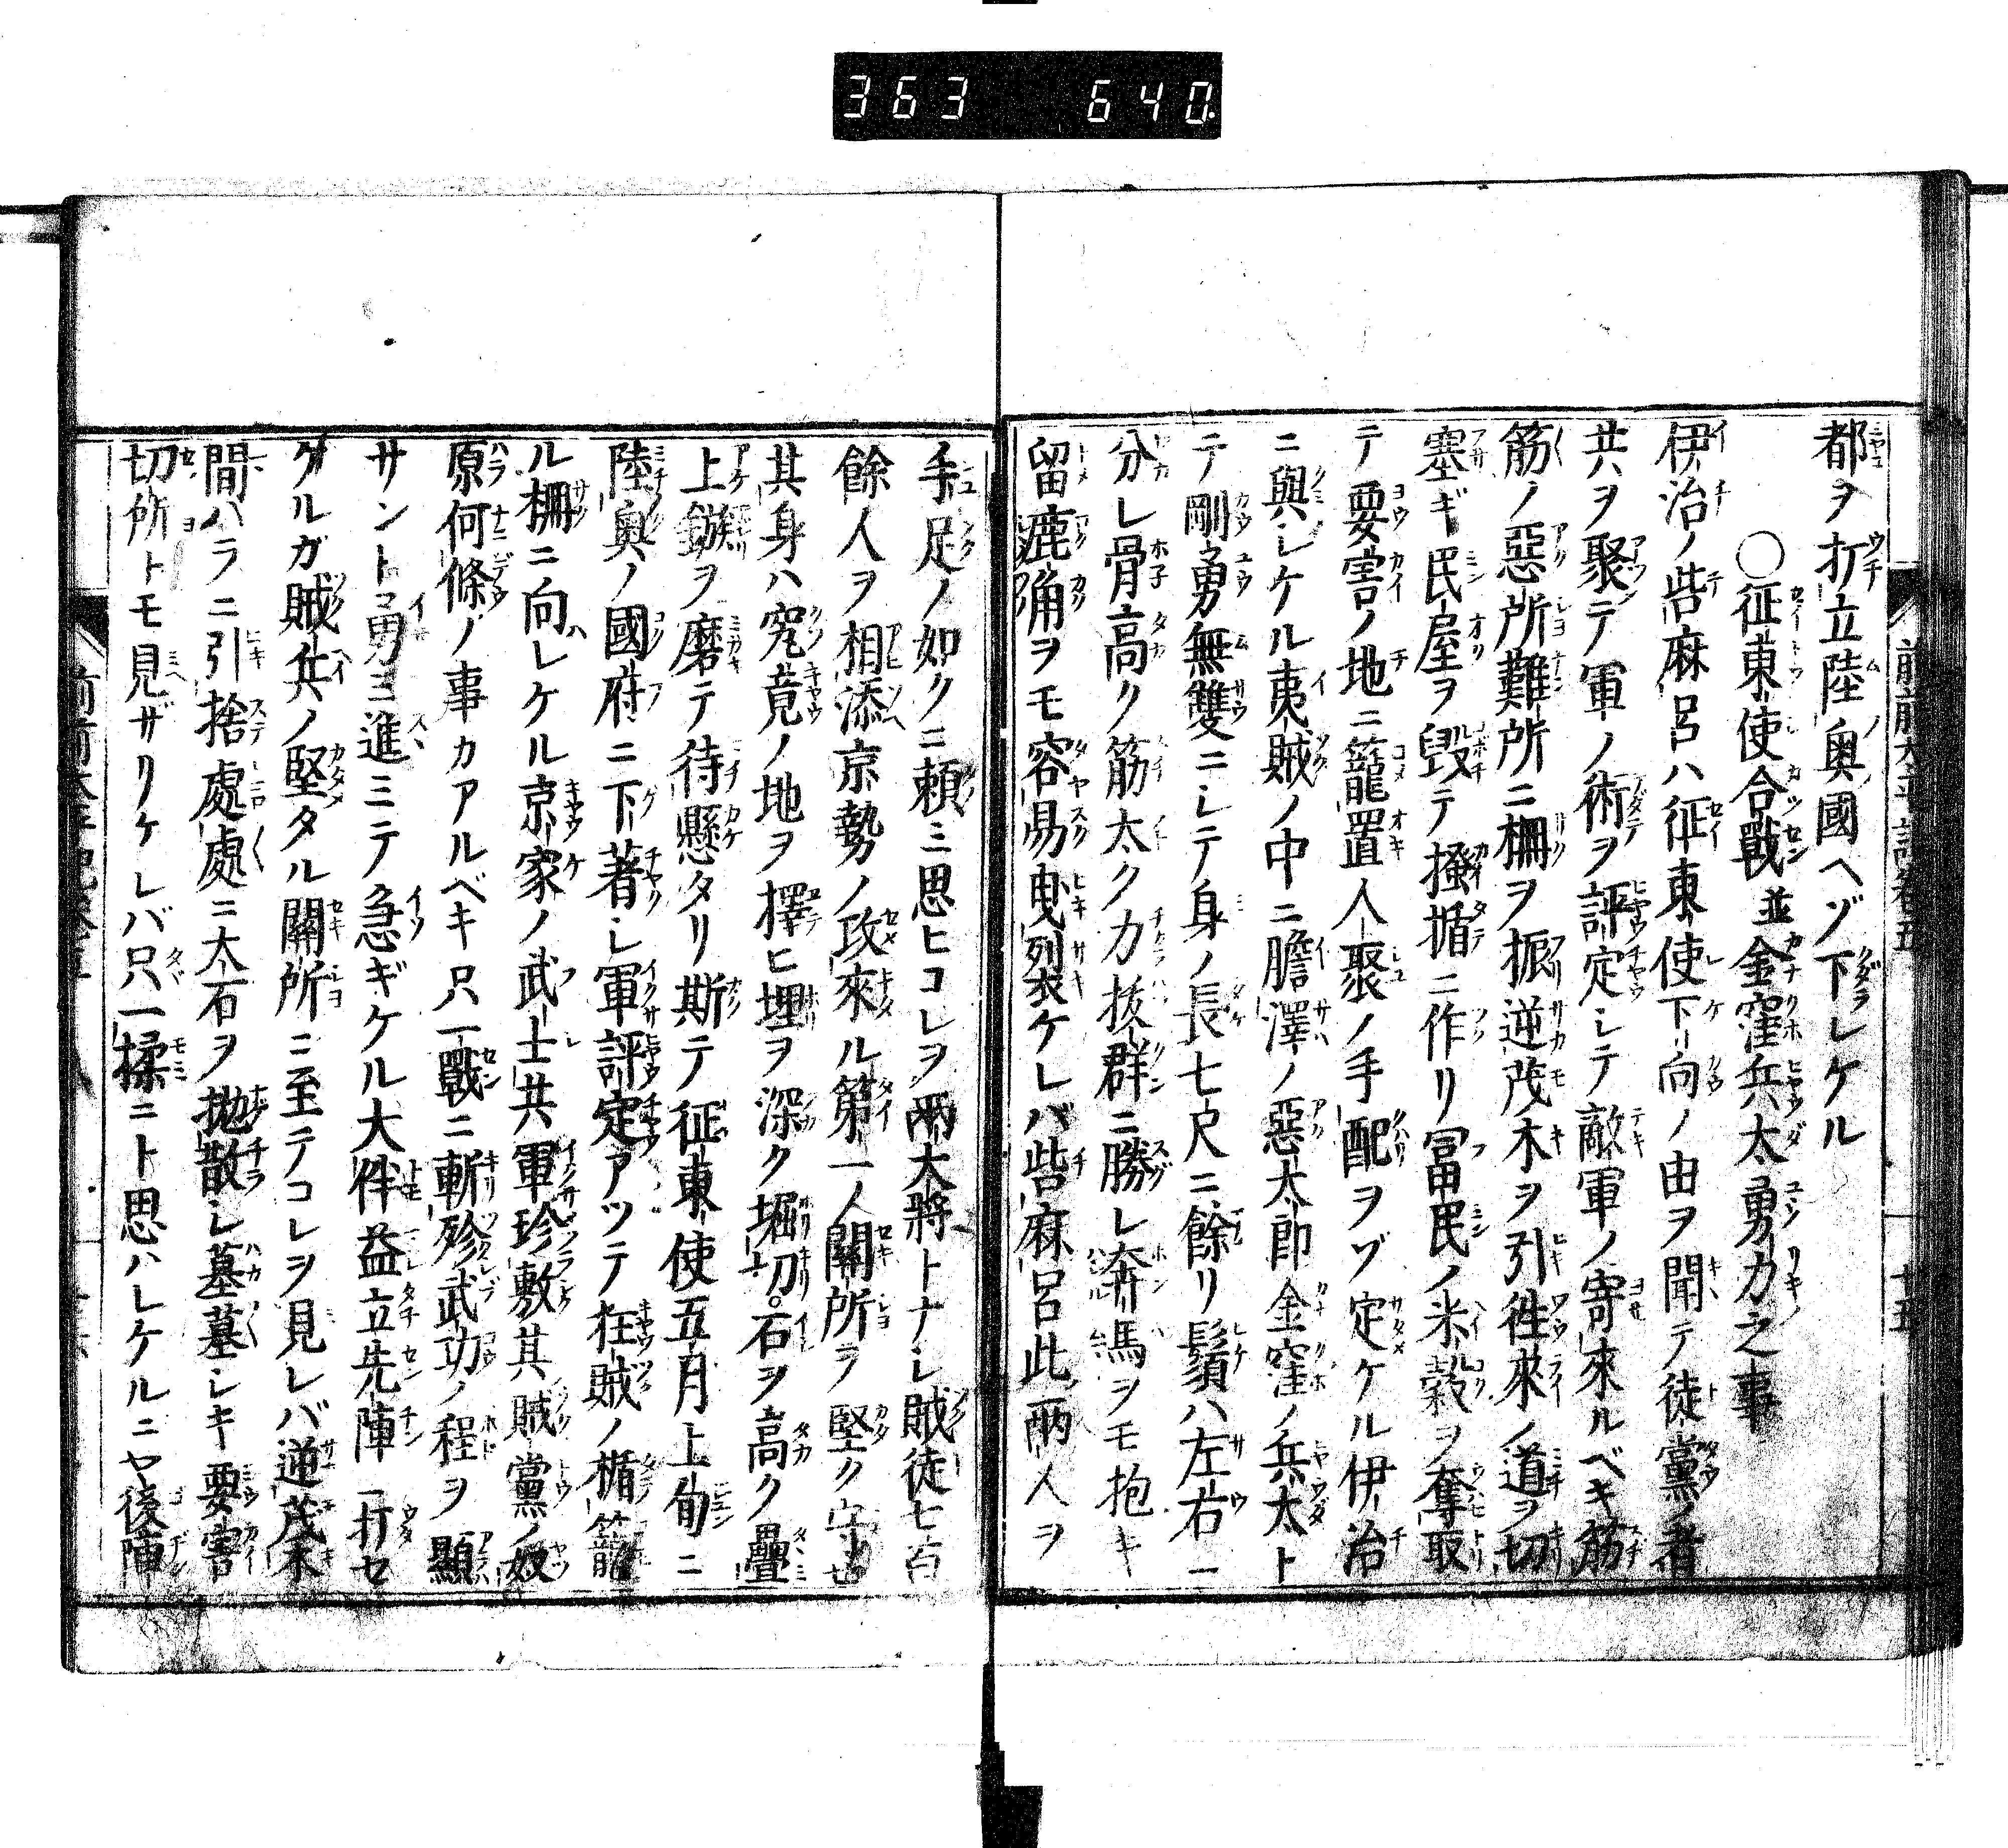 363 640
都ヲ打立陸奥國ヘゾ下ラレケル
〇征東使合戰並金窪兵太勇力之事
伊治ノ呰麻呂ハ征東使下向ノ由ヲ聞テ徒黨ノ者
共ヲ聚テ軍ノ術ヲ評定シテ敵軍ノ寄來ルベキ筋
筋ノ惡所難所ニ柵ヲ振逆茂木ヲ引徃來ノ道ヲ切
塞ギ民屋ヲ毀テ掻楯ニ作リ冨民ノ米穀ヲ奪取
テ要害ノ地ニ籠置人聚ノ手配ヲゾ定ケル伊治
ニ與シケル夷賊ノ中ニ膽澤ノ惡太郎金窪ノ兵太ト
テ剛勇無雙ニシテ身ノ長七尺ニ餘リ鬚ハ左右ニ
分レ骨高ク筋太ク力抜群ニ勝レ奔馬ヲモ抱キ
留鹿角ヲモ容易曳裂ケレバ呰麻呂此兩人ヲ
手足ノ如クニ頼ミ思ヒコレヲ兩大將トナシ賊徒七百
餘人ヲ相添京勢ノ攻來ル第一ノ關所ヲ堅ク守ラセ
其身ハ究竟ノ地ヲ擇ヒ埋ヲ深ク堀切石ヲ高ク疊
上鏃ヲ磨テ待懸タリ斯テ征東使五月上旬ニ
陸奥ノ國府ニ下著シ軍評定アツテ狂賊ノ楯籠
ル柵ニ向ハレケル京家ノ武士共軍珍敷其賊黨ノ奴
原何條ノ事カアルベキ只一戰ニ斬殄武功ノ程ヲ顯
サント勇ミ進ミテ急ギケル大伴益立先陣ニ打セ
ケルガ賊兵ノ堅タル關所ニ至テコレヲ見レバ逆茂木
間ハラニ引捨處處ニ大石ヲ抛散シ墓墓シキ要害
切所トモ見ヘザリケレバ只一揉ニト思ハレケルニヤ後陣